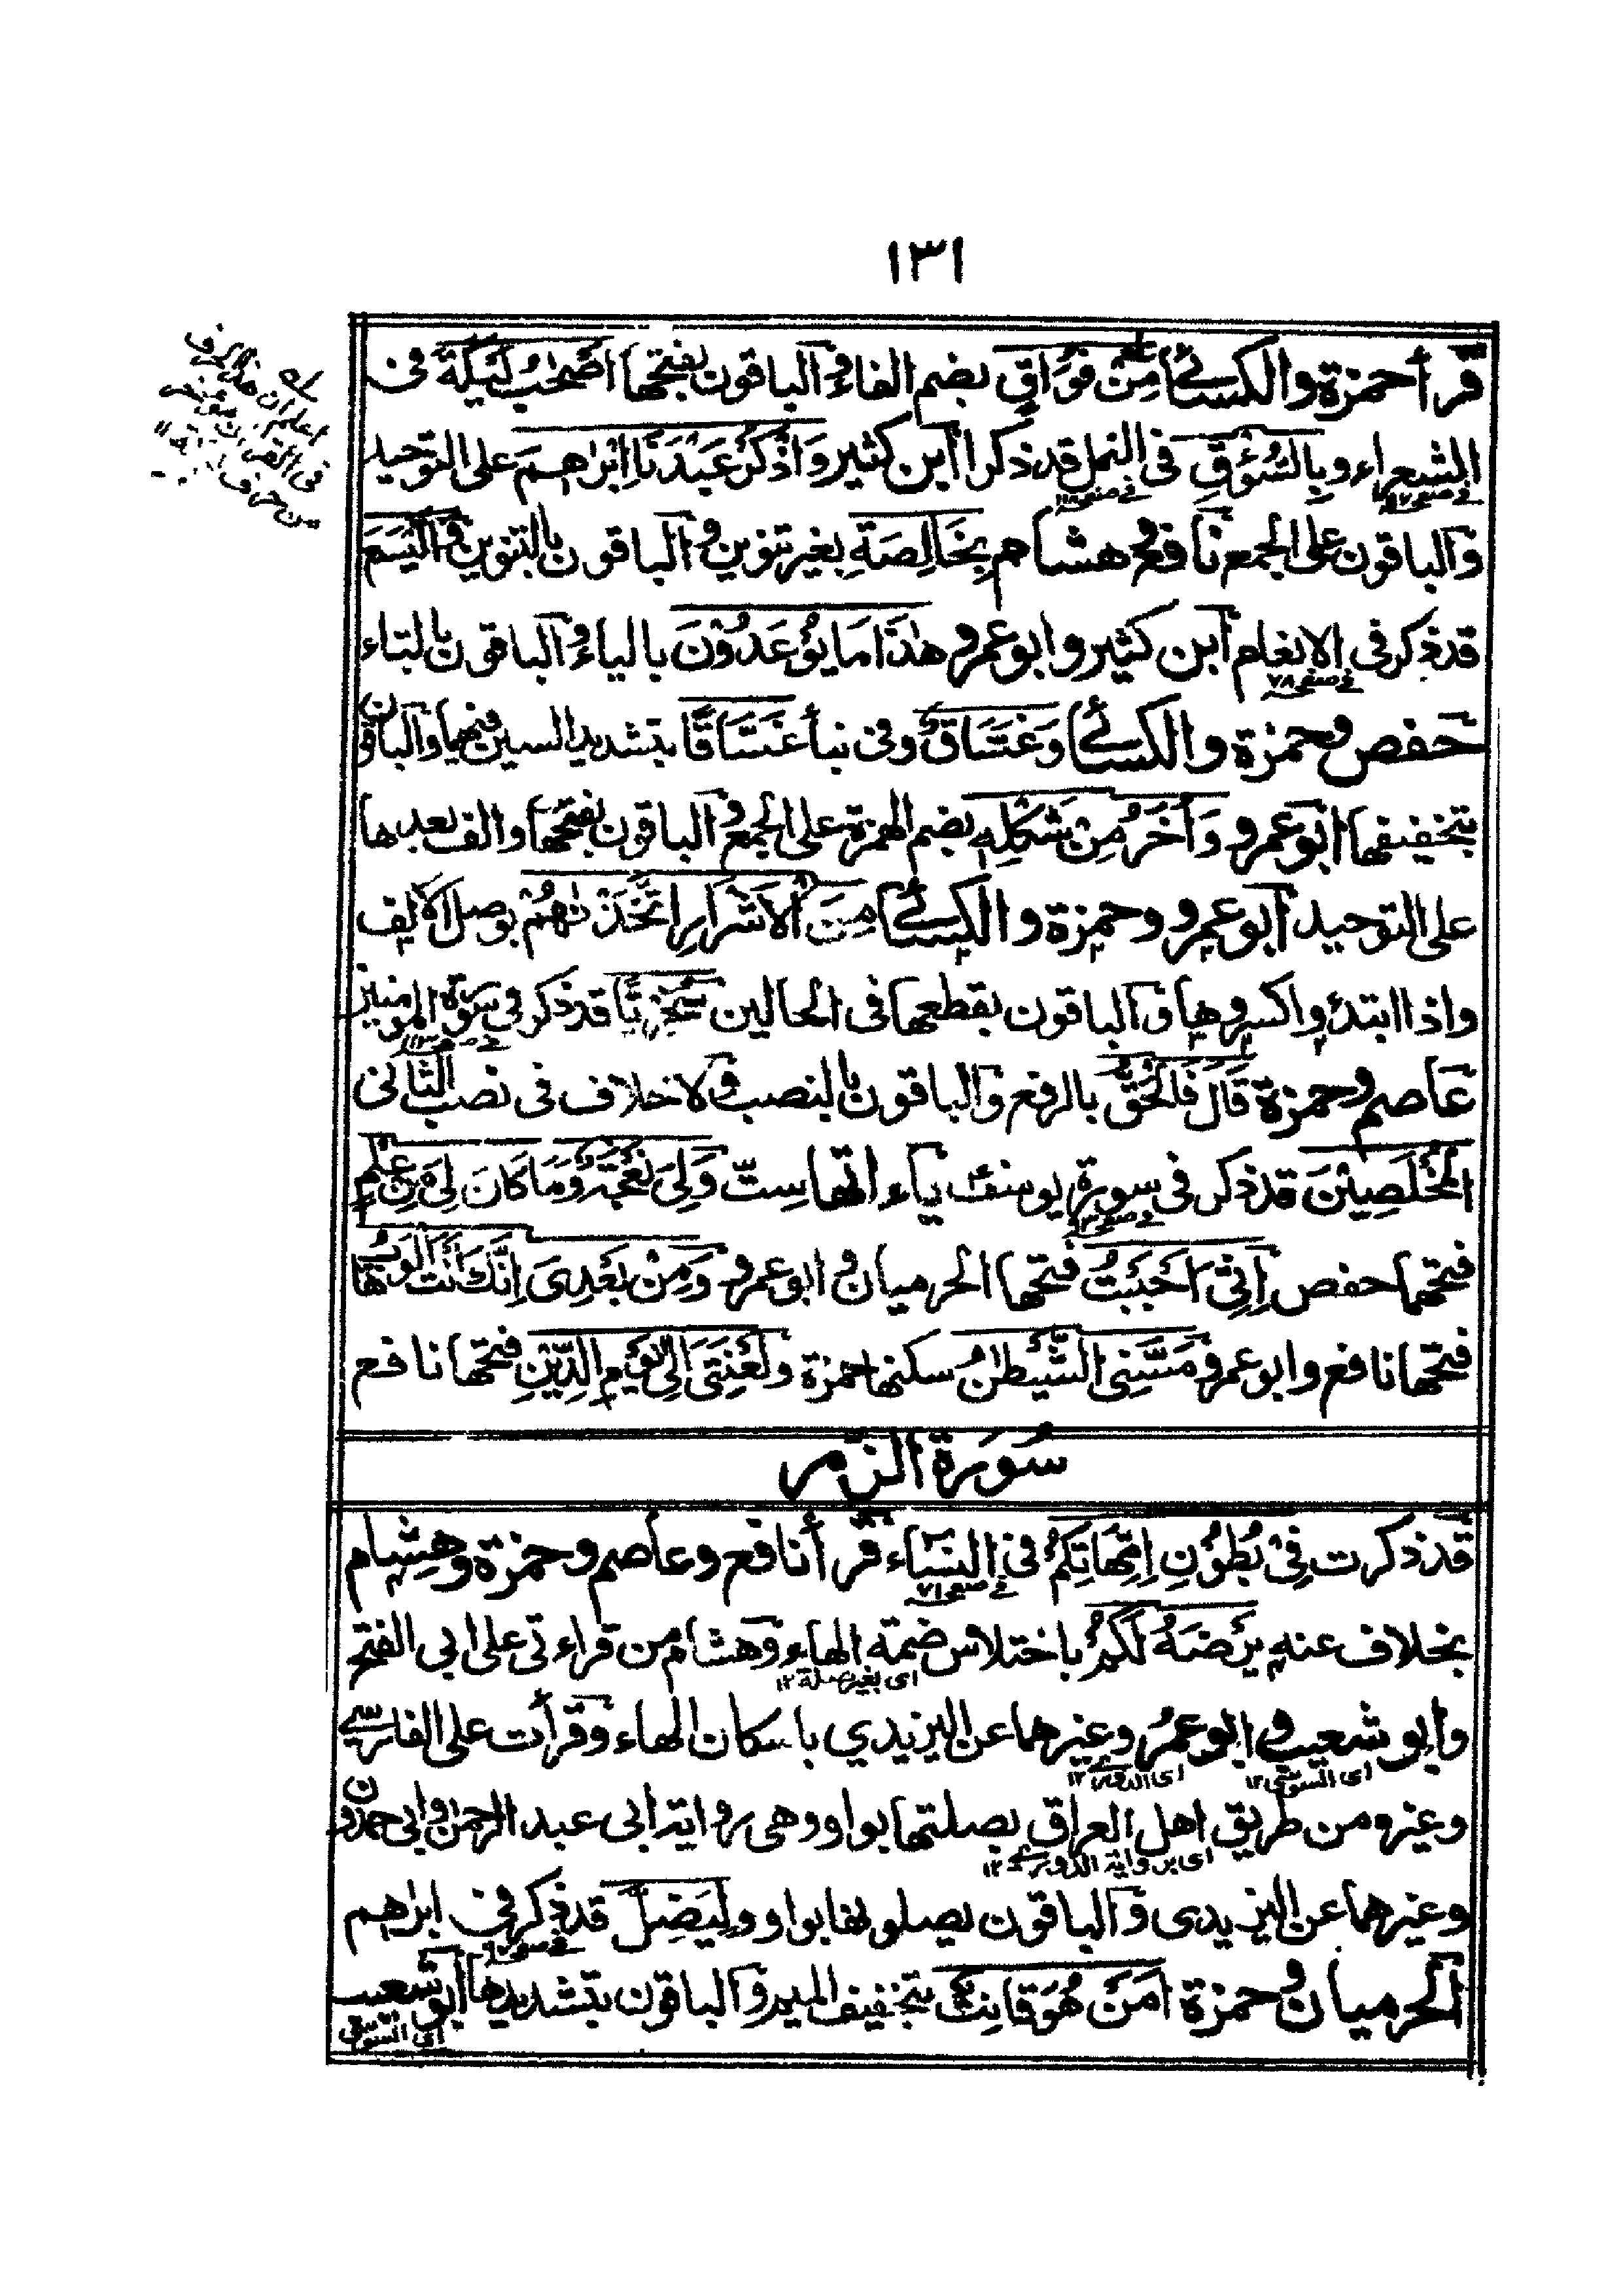 ١٣١
قرأ حمزة والكسائي من فُوَاقٍ بضم الفاء والباقون بفتحها اصْحٰبُ لْئَيْكَةِ فى
الشعراء وبِالسُّؤْقِ فى النمل قد ذكرا ابن كثير وَاذْكُرْ عَبْدَنَا اِبْرٰهِيمَ على التوحيد
فى صفحه
فى صفحه
والباقون على الجمع نافع وهشام بِخَالِصَةِ بغير تنوين والباقون بالتنوين وَالْيَسَعَ
قد ذكر فى الانعام ابن كثير وابو عمرو هٰذَا مَا يُوْعَدُوْنَ بالياء والباقون بالتاء
فى صفحه ٧٨
حفص وحمزة والكسائي وَغَسَّاقٌ وفى نبأ غَسَّاقًا بتشديد السين فيهما والباقون
بتخفيفها ابو عمرو وَاُخَرُ مِنْ شَكْلِهٖ بضم الهمزة على الجمع والباقون بفتحها والف بعدها
على التوحيد ابو عمرو وحمزة والكسائي مِنَ الْاَشْرَارِ اتَّخَذْنٰهُمْ بوصل الالف
واذا ابتدؤا كسروها والباقون بقطعها فى الحالين سُخْرِيًّا قد ذكر فى سورة المومنين
عاصم وحمزة قَالَ فَالْحَقُّ بالرفع والباقون بالنصب ولا خلاف فى نصب الثانى
الْمُخْلَصِيْنَ قد ذكر فى سورة يوسف ياء اتها ست وَلِىَ نَعْجَةٌ وَمَا كَانَ لِىَ مِنْ عِلْمٍ
فتحهما حفص اِنِّىْ اَحْبَبْتُ فتحها الحرميان وابو عمرو وَمِنْ بَعْدِىَ اِنَّكَ اَنْتَ الْوَهَّابُ
فتحها نافع وابو عمرو مَسَّنِىَ الشَّيْطٰنُ سكنها حمزة ولَعْنَتِىَ اِلٰى يَوْمِ الدِّيْنِ فتحها نافع
سُوْرَة الزمر
قد ذكرت فِىْ بُطُوْنِ اِمَّهَاتِكُمْ فى النساء قرأ نافع وعاصم وحمزة وهشام
فى صفحه ٧١
بخلاف عنه يَرْضَهُ لَكُمْ باختلاس ضمة الهاء وهشام من قراءتى على ابى الفتح
اى بغير صلة ١٢
وابو شعيب وابو عمر وغيرهما عن اليزيدي باسكان الهاء وقرأت على الفارسي
اى السوسى ١٢
اى الدورى ١٢
وغيره من طريق اهل العراق بصلتها بواو وهى رواية ابى عبد الرحمن وابى حمدون
اى من رواية الدورى ١٢
وغيرهما عن اليزيدى والباقون يصلونها بواو و لِيَضِلَّ قد ذكر فى ابرٰهيم
الحرميان وحمزة اَمَنْ هُوَ قَانِتٌ بتخفيف الميم والباقون بتشديدها ابو شعيب
اى السوسى